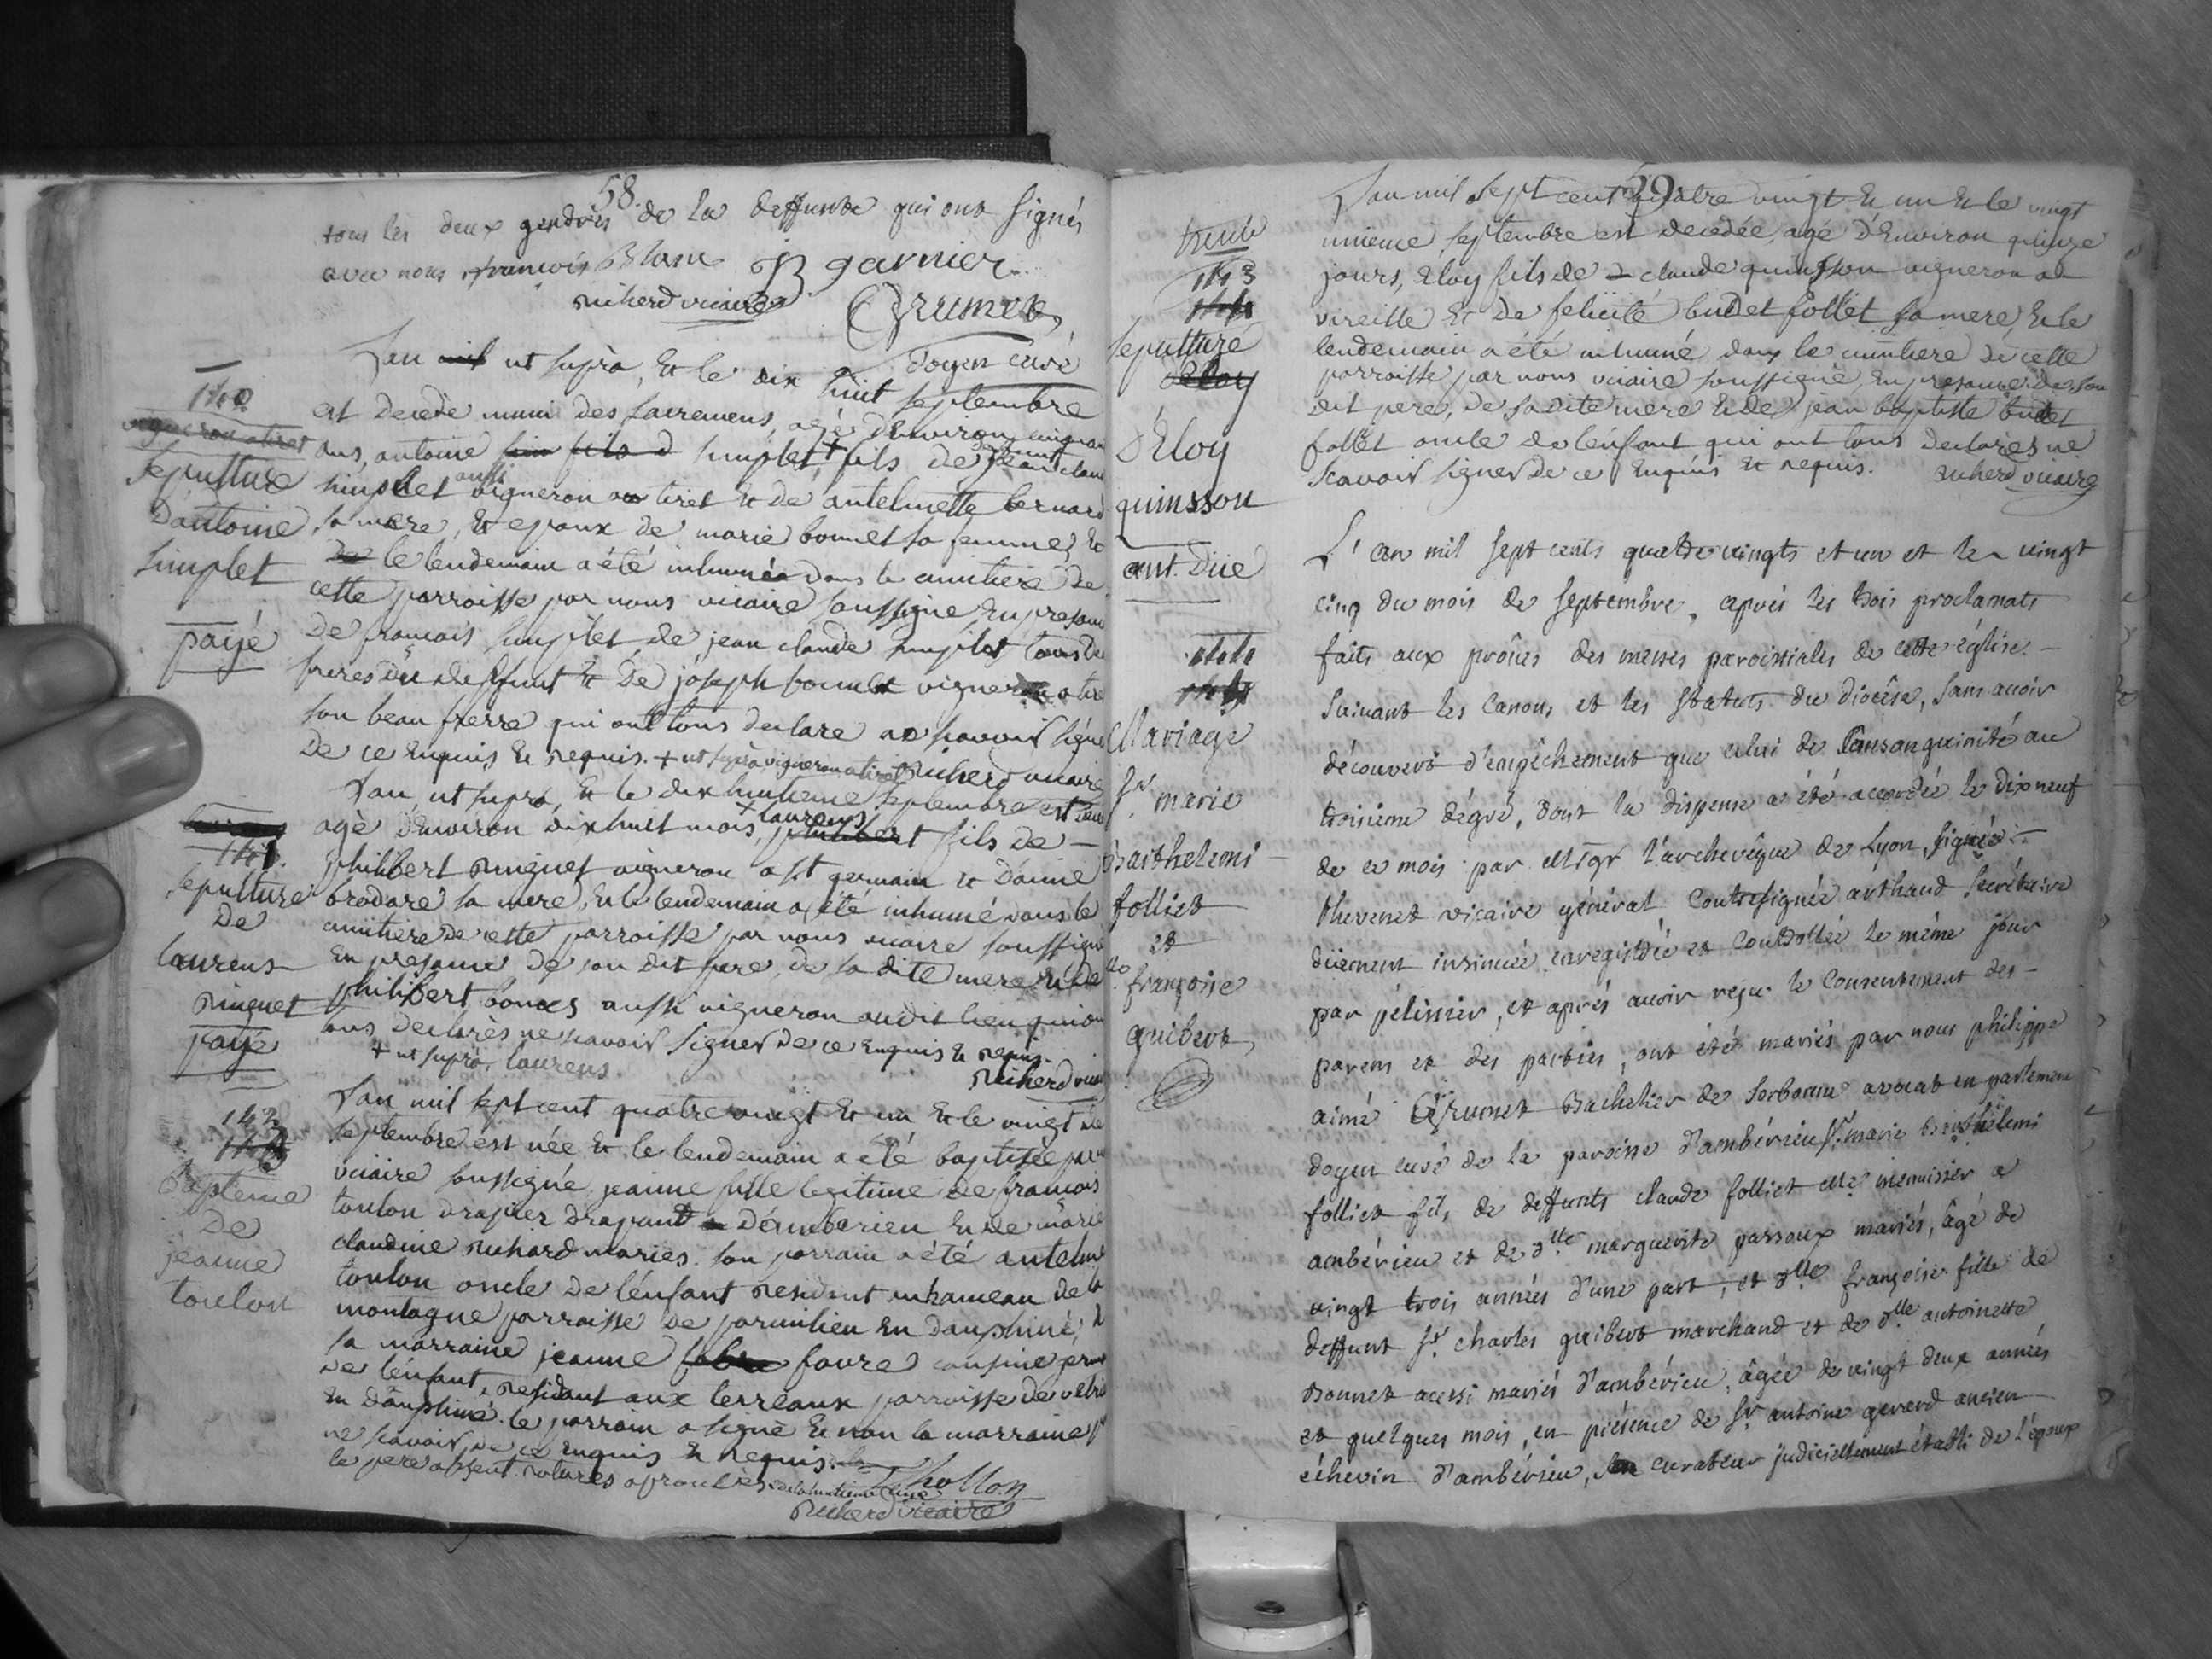 58.
tous les deux gendres de la deffunte qui ont signés
avec nous françois Blanc JB garnier
Richerd vicaire Grumet
doyen curé
140
vigneron a tiret
sepulture
d'antoine
simplet
payé
L'an ut suprà, Et le dix huit septembre
est decedé muni des sacremens, agé d'Environ cinquante
ans, antoine simplet + fils de deffunt jean claude
simplet aussi vigneron a tiret Et de antelmette bernard
sa mere, Et epoux de marie bonnet sa femme, Et
le lendemain a été inhumé dans le cimitiere de
cette parroisse par nous vicaire soussigné, En presence
de françois simplet, de jean claude simplet tous deux
freres du deffunt Et de joseph bonnet vigneron a tiret
son beau frere qui ont tous declaré ne scavoir signer
de ce Enquis Et requis. + ut suprà vigneron a tiret Richerd vicaire
141.
sepulture
de
laurens
Ringuet
payé
L'an ut suprà, Et le dix huitieme septembre est decedé
agé d'Environ dix huit mois, + laurens fils de
philibert Ringuet vigneron a st germain Et d'anne
brodare sa mere, Et le lendemain a été inhumé dans le
cimitiere de cette parroisse par nous vicaire soussigné
En presence de son dit pere, de sa dite mere Et de
philibert bonnes aussi vigneron au dit lieu qui ont
tous declarès ne scavoir signer de ce Enquis Et requis.
+ ut suprà laurens.
Richerd vicaire
142
Bapteme
de
jeanne
toulon
L'an mil sept cent quatre vingt Et un Et le vingt de
septembre est née Et le lendemain a été baptisée par
vicaire soussigné jeanne fille legitime de françois
toulon drapier drapant d'ambérieu Et de marie
claudine Richard mariés. son parrain a été antelme
toulon oncle de l'énfant resident au hameau de la
montagne parroisse de parmilieu En dauphiné, Et
sa marraine jeanne favre cousine germaine
de l'énfant, residant aux terreaux parroisse de
En dauphiné. le parrain a signé Et non la marraine pour
ne scavoir de ce Enquis Et requis.
le pere absent. ratures aprouvées Thollon
Richerd vicaire
59
143
sepulture
d'Eloy
quinsson
ant. Düe
L'an mil sept cent quatre vingt Et un Et le vingt
unieme septembre est decedée, agé d'Environ quinze
jours, Eloy fils de claude quinsson vigneron a
vireille Et de felicité budet follet sa mere, Et le
lendemain a été inhumé dans le cimitiere de cette
parroisse par nous vicaire soussigné, En presence de son
dit pere, de sa dite mere Et de jean baptiste budet
follet oncle de l'énfant qui ont tous declarès ne
scavoir signer de ce Enquis Et requis. Richerd vicaire
144
Mariage
Sr. marie
Barthelemi
folliet
et
dlle. françoise
guibert
L'an mil sept cents quatre vingts et un et le vingt
cinq du mois de septembre, aprés les trois proclamats
faits aux prônes des messes paroissiales de cette église
suivant les canons et les statuts du diocèse, sans avoir
découvert d'empêchement que celui de Consanguinité au
troisième dégré, dont la dispense a été accordée le dix neuf
de ce mois par Mgr l'archevêque de Lyon, signée
thevenet vicaire général, Contresignée arthaud secrétaire
düement insinuée enregistrée et Controllée le même jour
par pélissier, et aprés avoir reçu le Consentement des
parens et des parties, ont été mariés par nous philippe
aimé Grumet Bachelier de sorbonne avocat en parlement
doyen curé de la paroisse d'ambérieu sr. marie Barthélemi
folliet fils de deffunts claude folliet Me. menuisier a
ambérieu et de dlle marguerite passoux mariés, âgé de
vingt trois années d'une part, et dlle françoise fille de
deffunt sr. charles guibert marchand et de dlle antoinette
Bonnet aussi mariés d'ambérieu, âgée de vingt deux années
et quelques mois, en présence de sr. antoine gerard ancien
échevin d'ambérieu, curateur judiciellement établi de l'époux